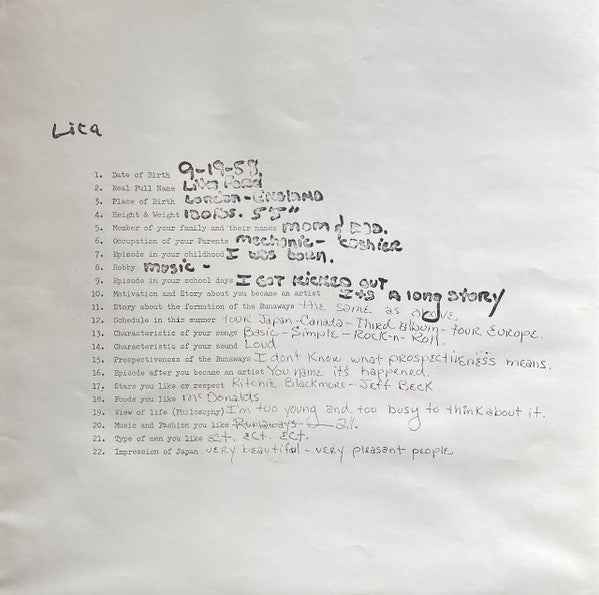 Lita
1. Date of Birth 9-19-58.
2. Real Full Name Lita Ford
3. Place of Birth London-England
4. Height & Weight 120 lbs. 5'5"
5. Member of your family and their names mom & Dad.
6. Occupation of your Parents mechanic- cashier
7. Episode in your childhood I was born.
8. Hobby music -
9. Episode in your school days I Got Kicked Out
10. Motivation and Story about you became an artist Its A long STORY
11. Story about the formation of the Runaways the same as above.
12. Schedule in this summer TOUR Japan-Canada-Third album-tour EUROPE.
13. Characteristic of your songs Basic-Simple-Rock-n-Roll.
14. Characteristic of your sound Loud
15. Prospectiveness of the Runaways I dont Know what prospectiveness means.
16. Episode after you became an artist You name its happened.
17. Stars you like or respect Ritchie Blackmore-Jeff Beck
18. Foods you like McDonalds
19. View of life (Philosophy) I'm too young and too busy to think about it.
20. Music and Fashion you like Runaways
21. Type of men you like ect. ect. ect.
22. Impression of Japan very beautiful - very pleasant people